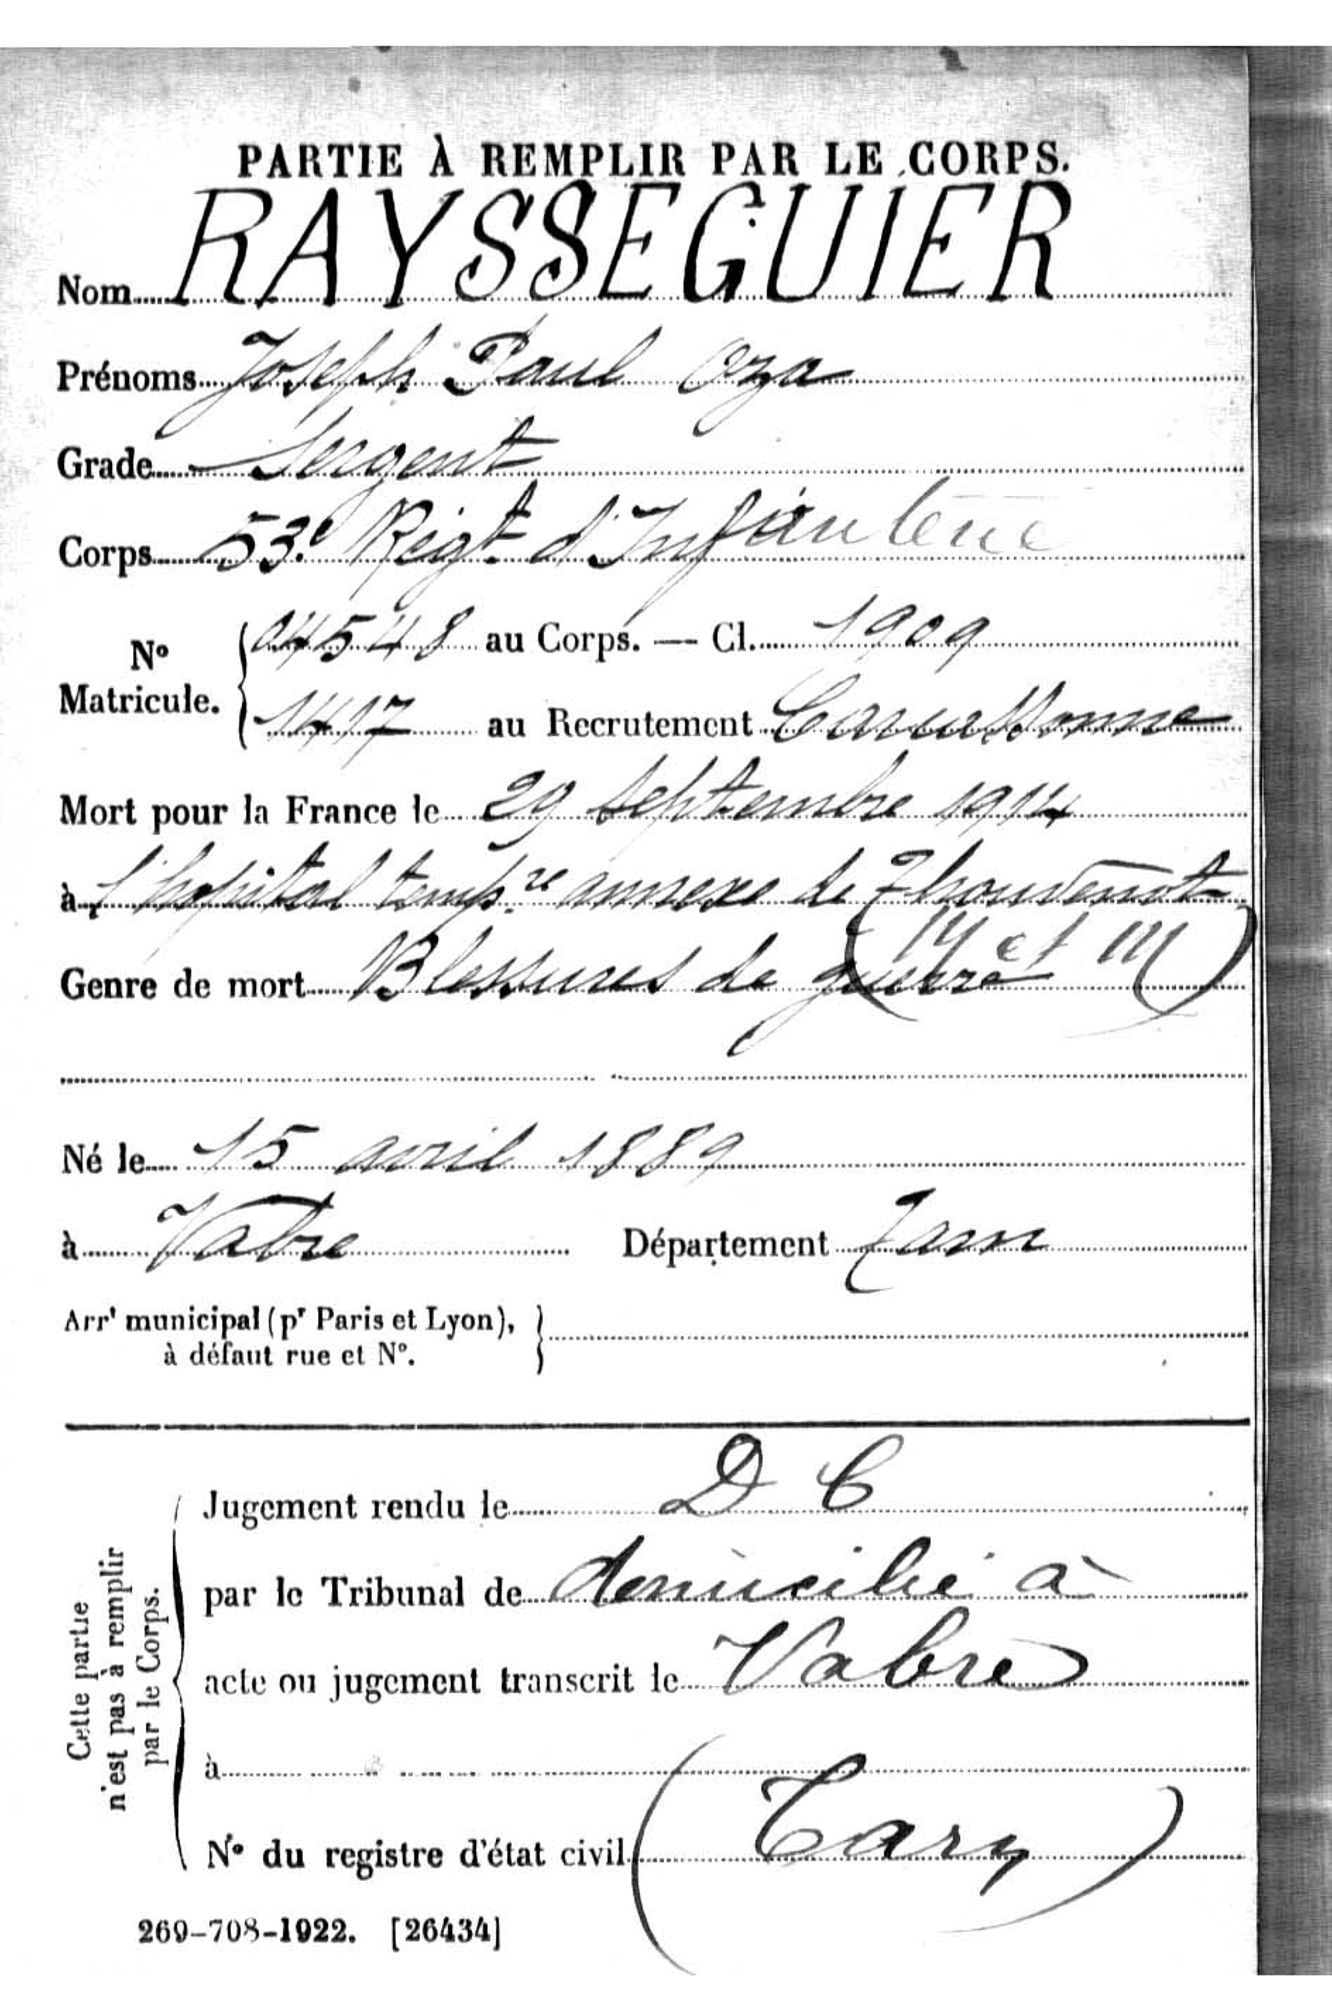 PARTIE À REMPLIR PAR LE CORPS.
Nom RAYSSEGUIER
Prénoms Joseph Paul Oza
Grade Sergent
Corps 53e Régt d'Infanterie
No Matricule. 04548 au Corps. — Cl. 1909
1417 au Recrutement Carcassonne
Mort pour la France le 29 Septembre 1914
à l'hopital tempre annexe de Thouvenot
(M et M)
Genre de mort Blessures de guerre
Né le 15 avril 1889
à Vabre Département Tarn
Arrt municipal (pr Paris et Lyon),
à défaut rue et No.
Cette partie
n'est pas à remplir
par le Corps.
Jugement rendu le D C
par le Tribunal de domicilié à
acte ou jugement transcrit le Vabre
à
No du registre d'état civil (Tarn)
269-708-1922. [26434]